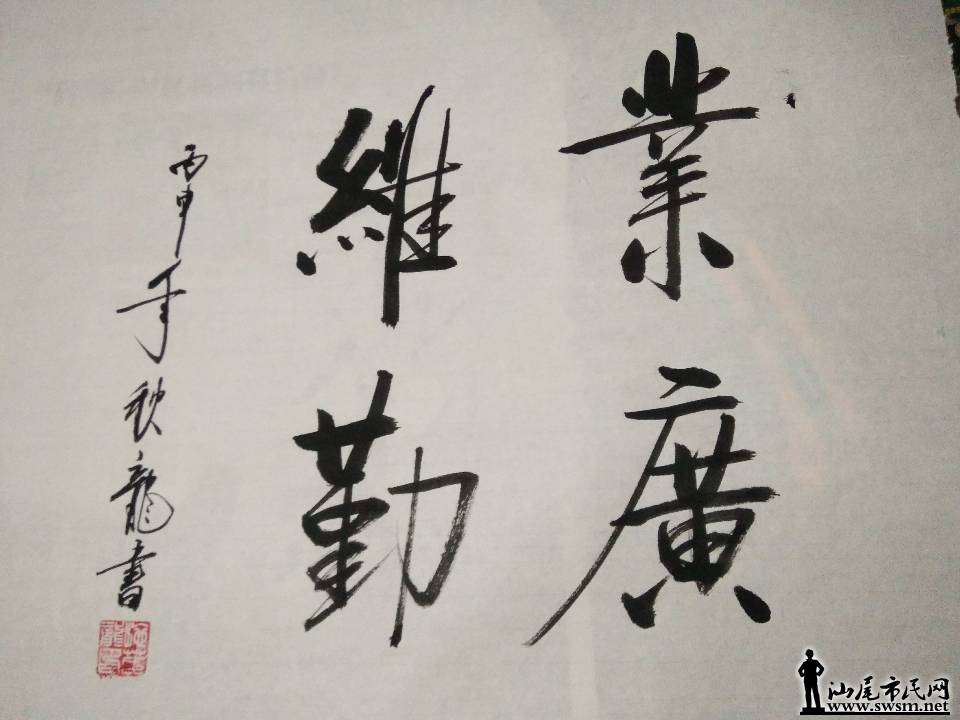 業廣
維勤
丙申年秋龍書
汕尾市民网
www.swsm.net